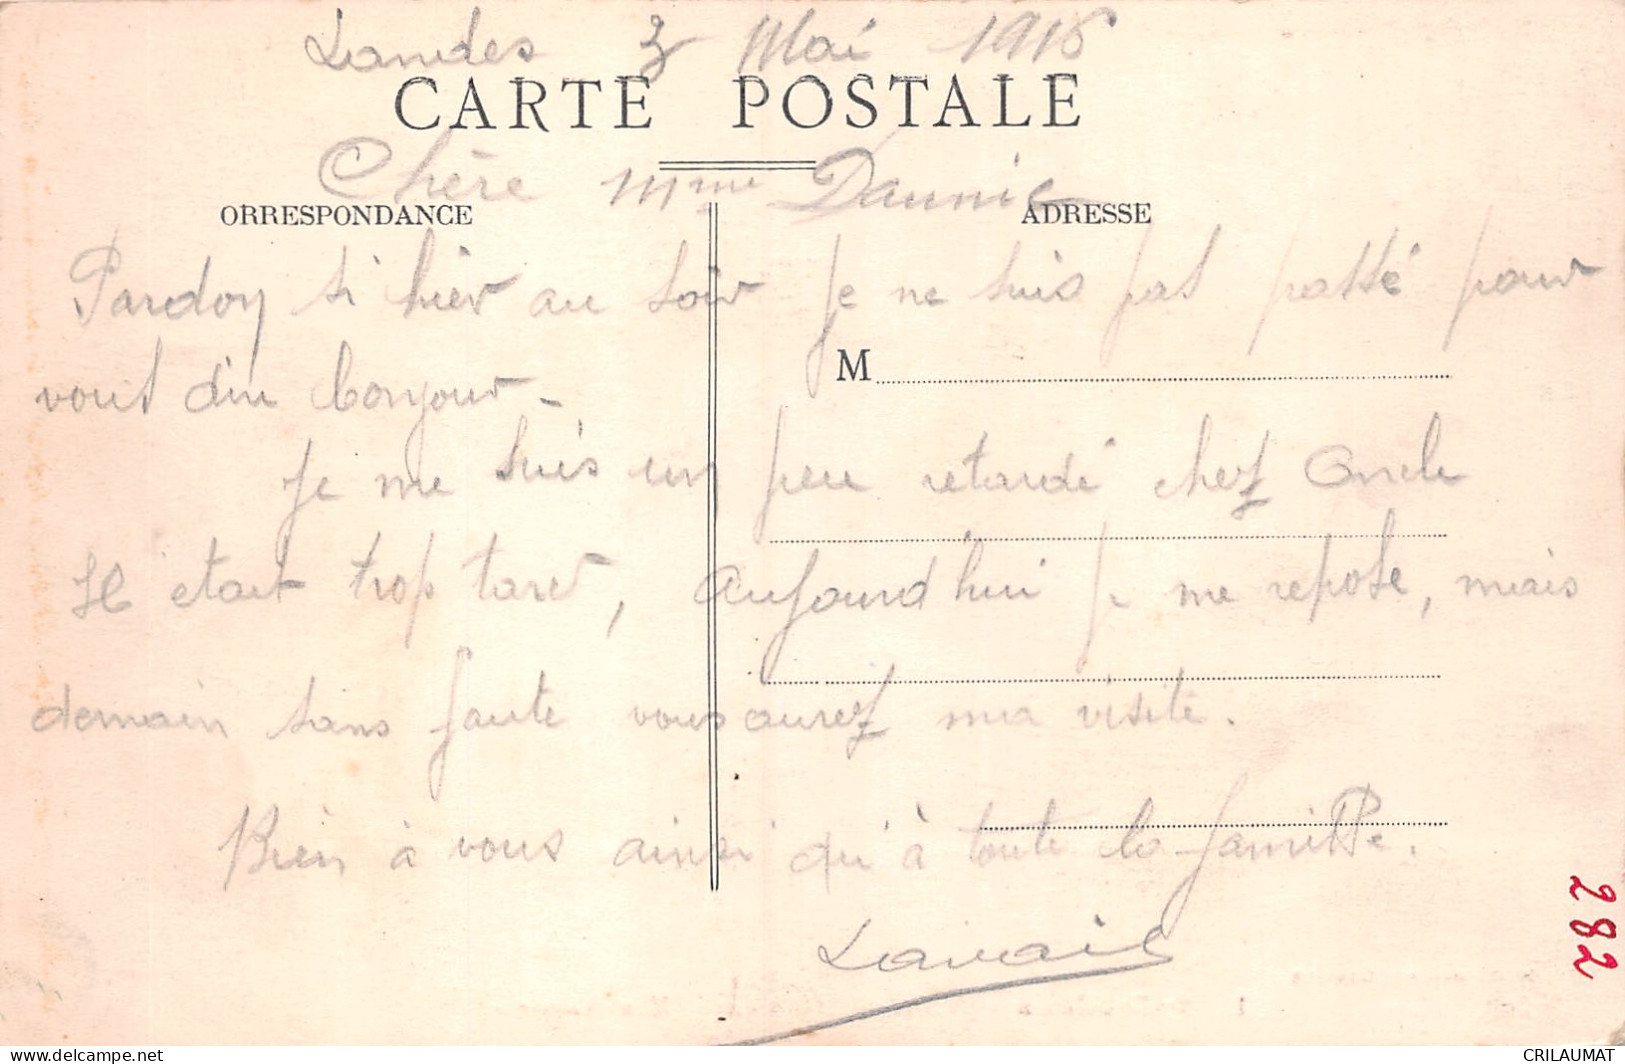 Landes 3 Mai 1916
CARTE POSTALE
Chère Mme Daunic
ORRESPONDANCE
ADRESSE
Pardon si hier au soir je ne suis pas passé pour
M
vous dire bonjour -
Je me suis un peu retardé chez Oncle
Il était trop tard, aujourd'hui je me repose, mais
demain sans faute vous aurez ma visite.
Bien à vous ainsi qu'à toute la famille.
282
CRILAUMAT